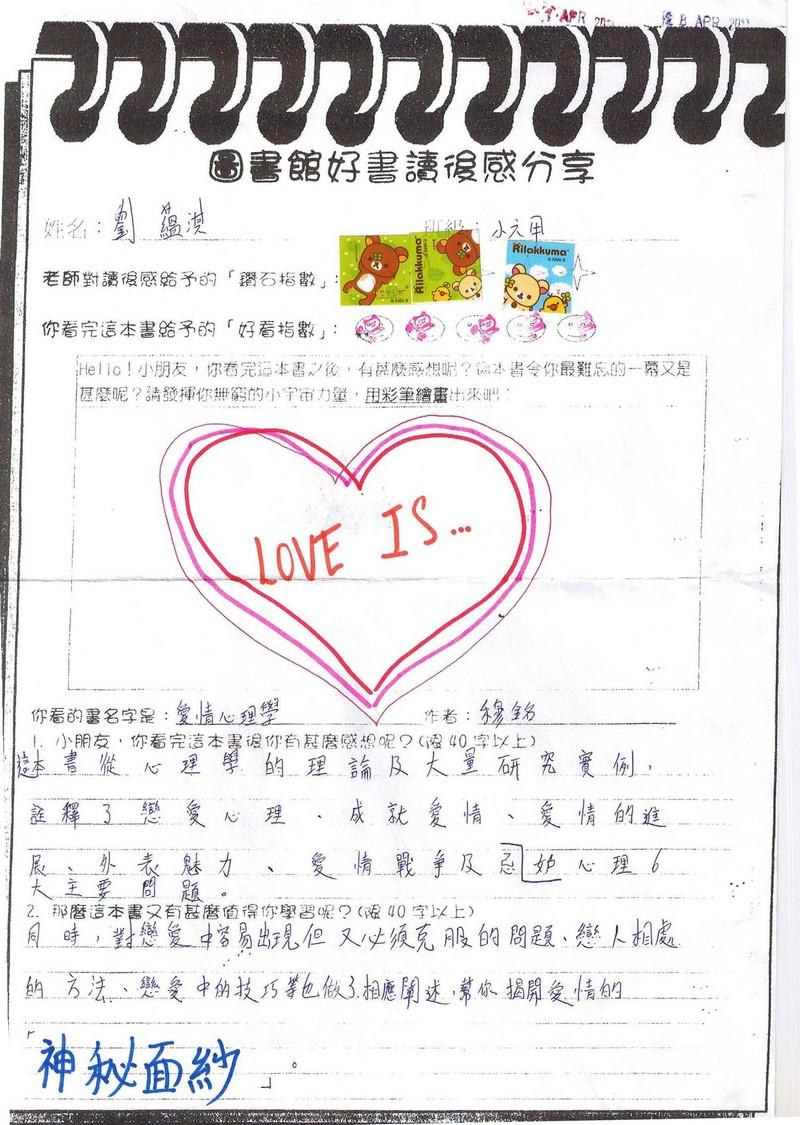 APR 20
8 APR 2011
圖書館好書讀後感分享
姓名：劉蘊淇 班級：小六甲
老師對讀後感給予的「鑽石指數」：
Rilakkuma
Rilakkuma
你看完這本書給予的「好看指數」：
Hello！小朋友，你看完這本書之後，有甚麼感想呢？這本書令你最難忘的一幕又是
甚麼呢？請發揮你無窮的小宇宙力量，用彩筆繪畫出來吧！
LOVE IS...
你看的書名字是：愛情心理學 作者：穆銘
1. 小朋友，你看完這本書後你有甚麼感想呢？(限40字以上)
這本書從心理學的理論及大量研究實例，
詮釋了戀愛心理、成就愛情、愛情的進
展、外表魅力、愛情戰爭及忌妒心理6
大主要問題。
2. 那麼這本書又有甚麼值得你學習呢？(限40字以上)
同時，對戀愛中容易出現但又必須克服的問題、戀人相處
的方法、戀愛中的技巧等也做了相應闡述，幫你揭開愛情的
「神秘面紗」。